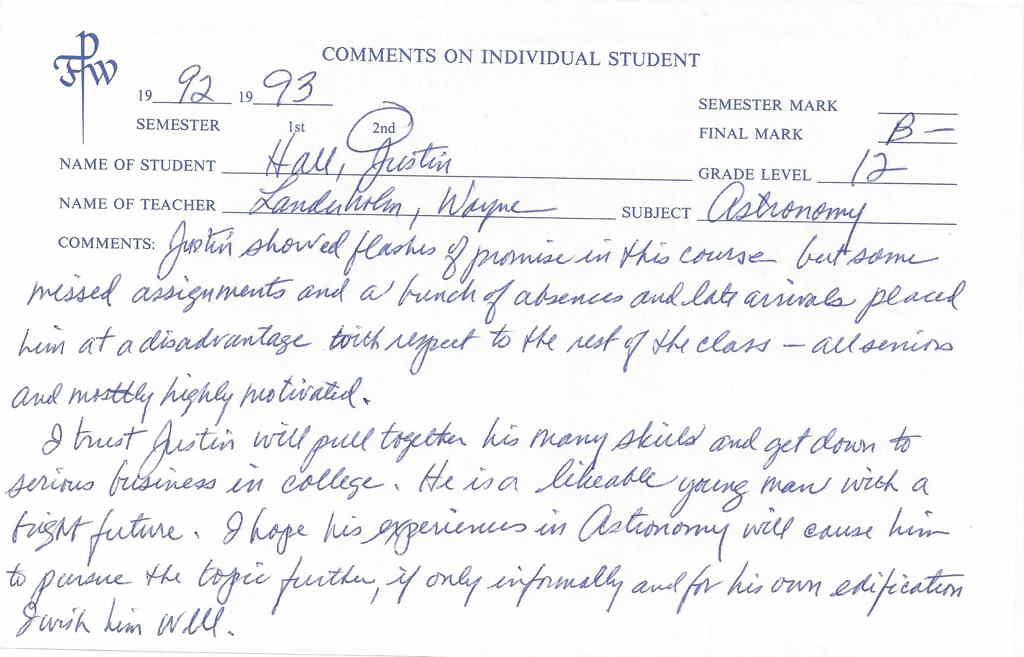 FPW
COMMENTS ON INDIVIDUAL STUDENT
19 92 19 93
SEMESTER MARK
SEMESTER 1st 2nd
FINAL MARK B-
NAME OF STUDENT Hall, Justin
GRADE LEVEL 12
NAME OF TEACHER Landerholm, Wayne SUBJECT Astronomy
COMMENTS: Justin showed flashes of promise in this course but some
missed assignments and a bunch of absences and late arrivals placed
him at a disadvantage with respect to the rest of the class – all seniors
and mostly highly motivated.
I trust Justin will pull together his many skills and get down to
serious business in college. He is a likeable young man with a
bright future. I hope his experiences in Astronomy will cause him
to pursue the topic further, if only informally and for his own edification
I wish him well.